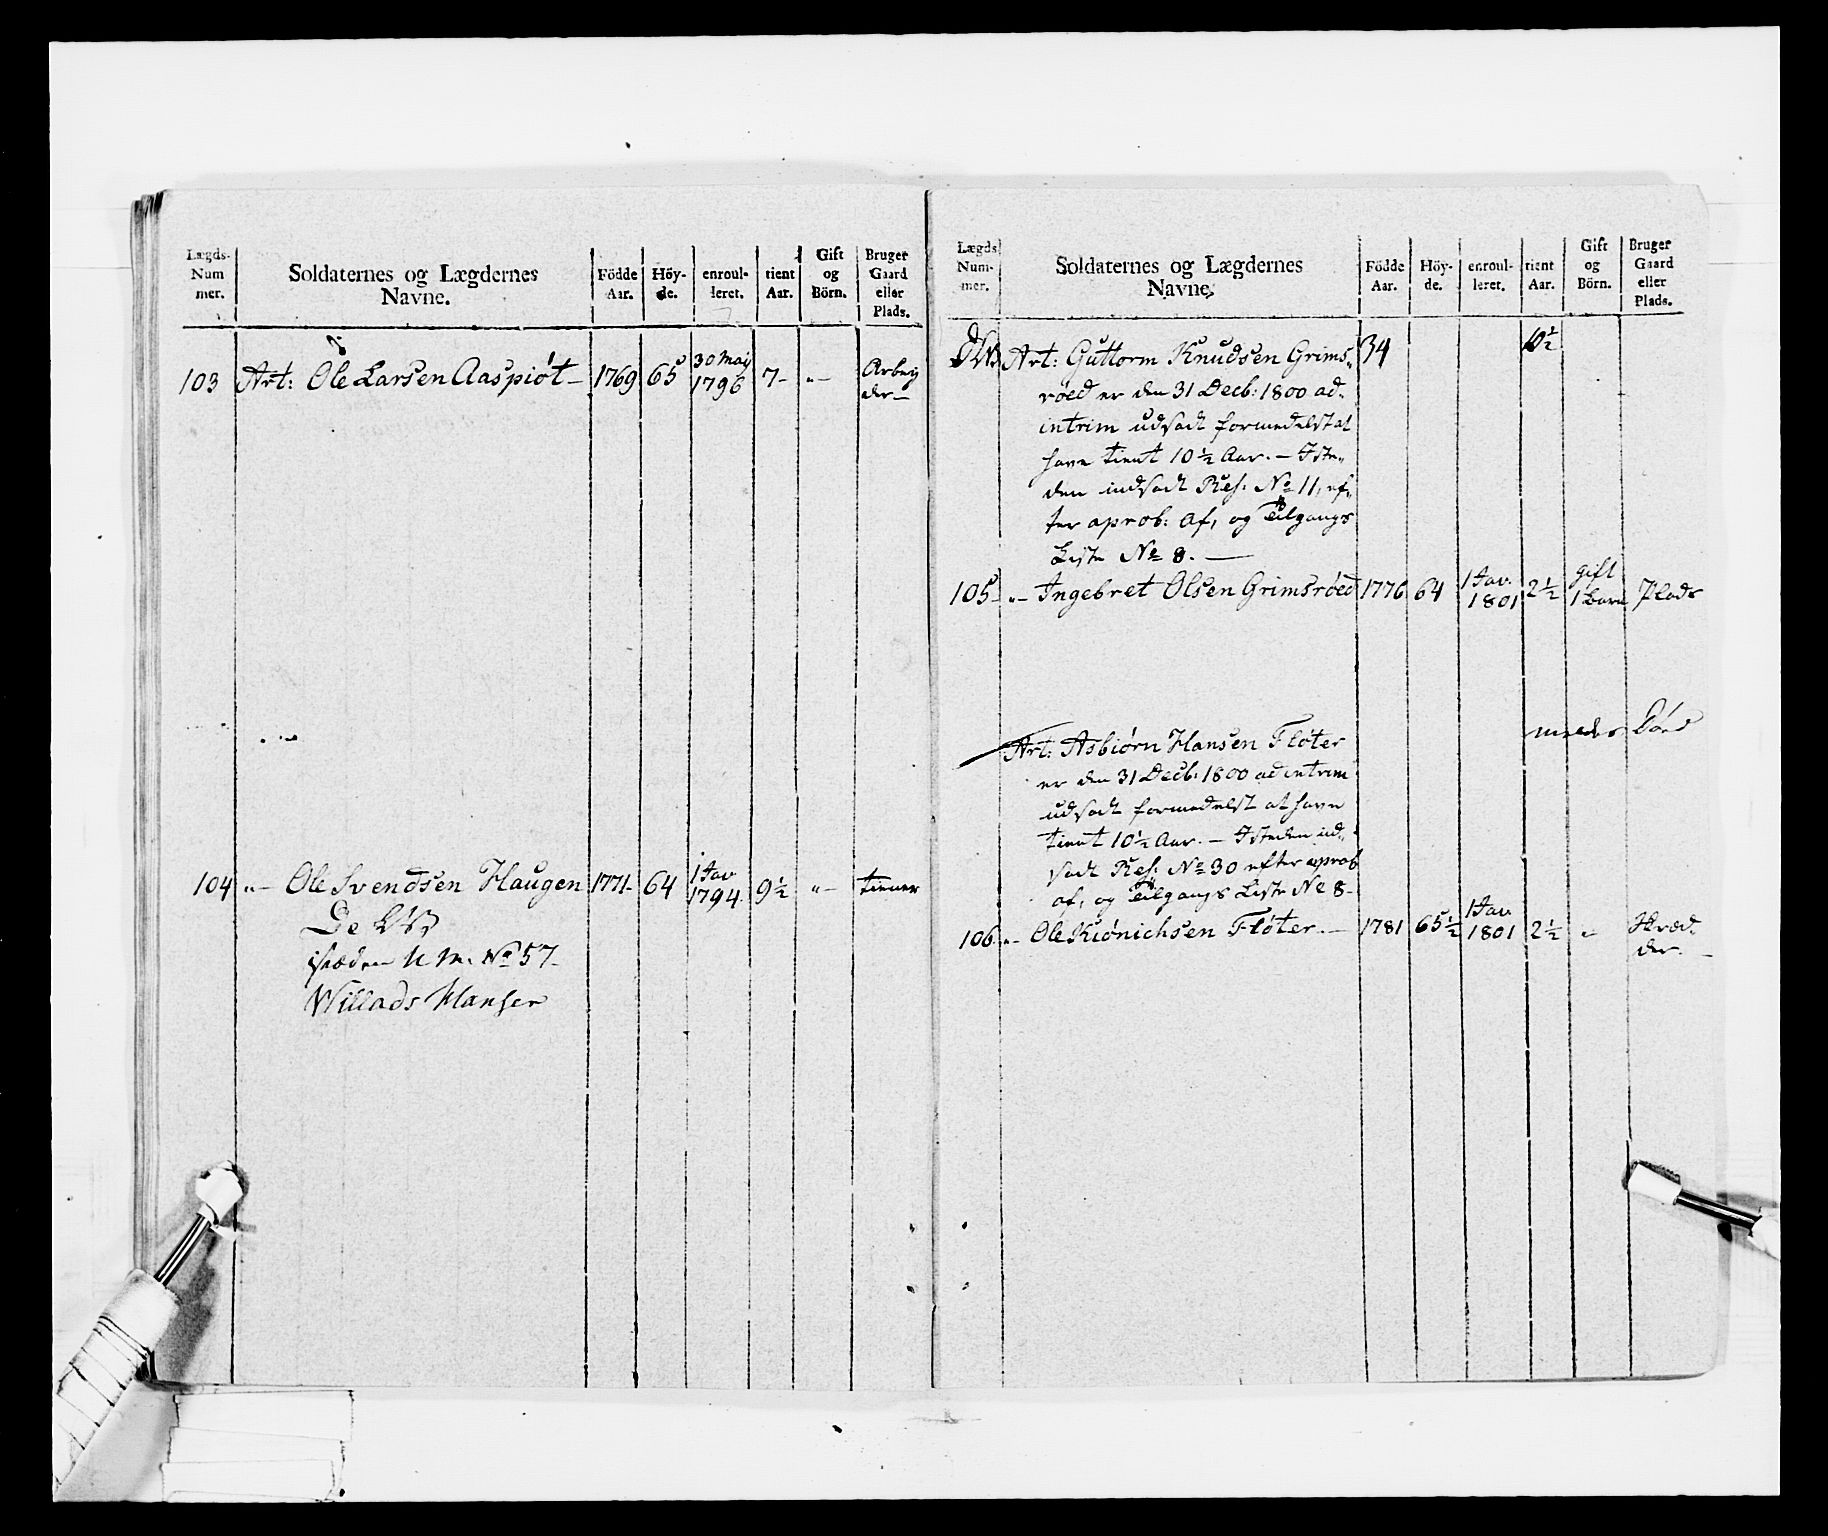 Lægds- Num mer.
Soldaternes og Lægdernes Navne.
Födde Aar.
Höy- de.
enroul- leret.
tient Aar.
Gift og Börn.
Bruger Gaard eller Plads.
103 Art: Ole Larsen Aaspiöt- 1769 65 30 Maij 1796 7- „- Arbey der-
104 „- Ole Svendsen Haugen 1771- 64 1 Jav 1794. 9½ „- tiener
istæden N. M. No 57-
Willads Hansen
Lægds Num- mer.
Soldaternes og Lægdernes Navne,
Födde Aar.
Höy- de.
enroul- leret.
tient Aar.
Gift og Börn.
Bruger Gaard eller Plads.
Art: Guttorm Knudsen Grims„ 34 10½
röed er den 31 Decb: 1800 ad„
intrim udsadt formedelst at
have tient 10½ Aar. - Iste„
den indsadt Res: No 11, ef„
ter aprob: Af, og Tilgangs
Liste No 8. —
105- „- Ingebret Olsen Grimsröed 1776 64 1 Jav. 1801 2½ gift 1 Barn Plads
Art: Asbiörn Hansen Flöter meldes Död
er den 31 Decb: 1800 ad intrim
udsadt formedelst at have
tient 10½ Aar. - Isteden ind„
sadt Res: No 30 efter aprob
af, og Tilgangs Liste No 8-
106 „- Ole Kiönichsen Flöter.- 1781 65½ 1 Jav 1801 2½ „ Skræd„ der. -